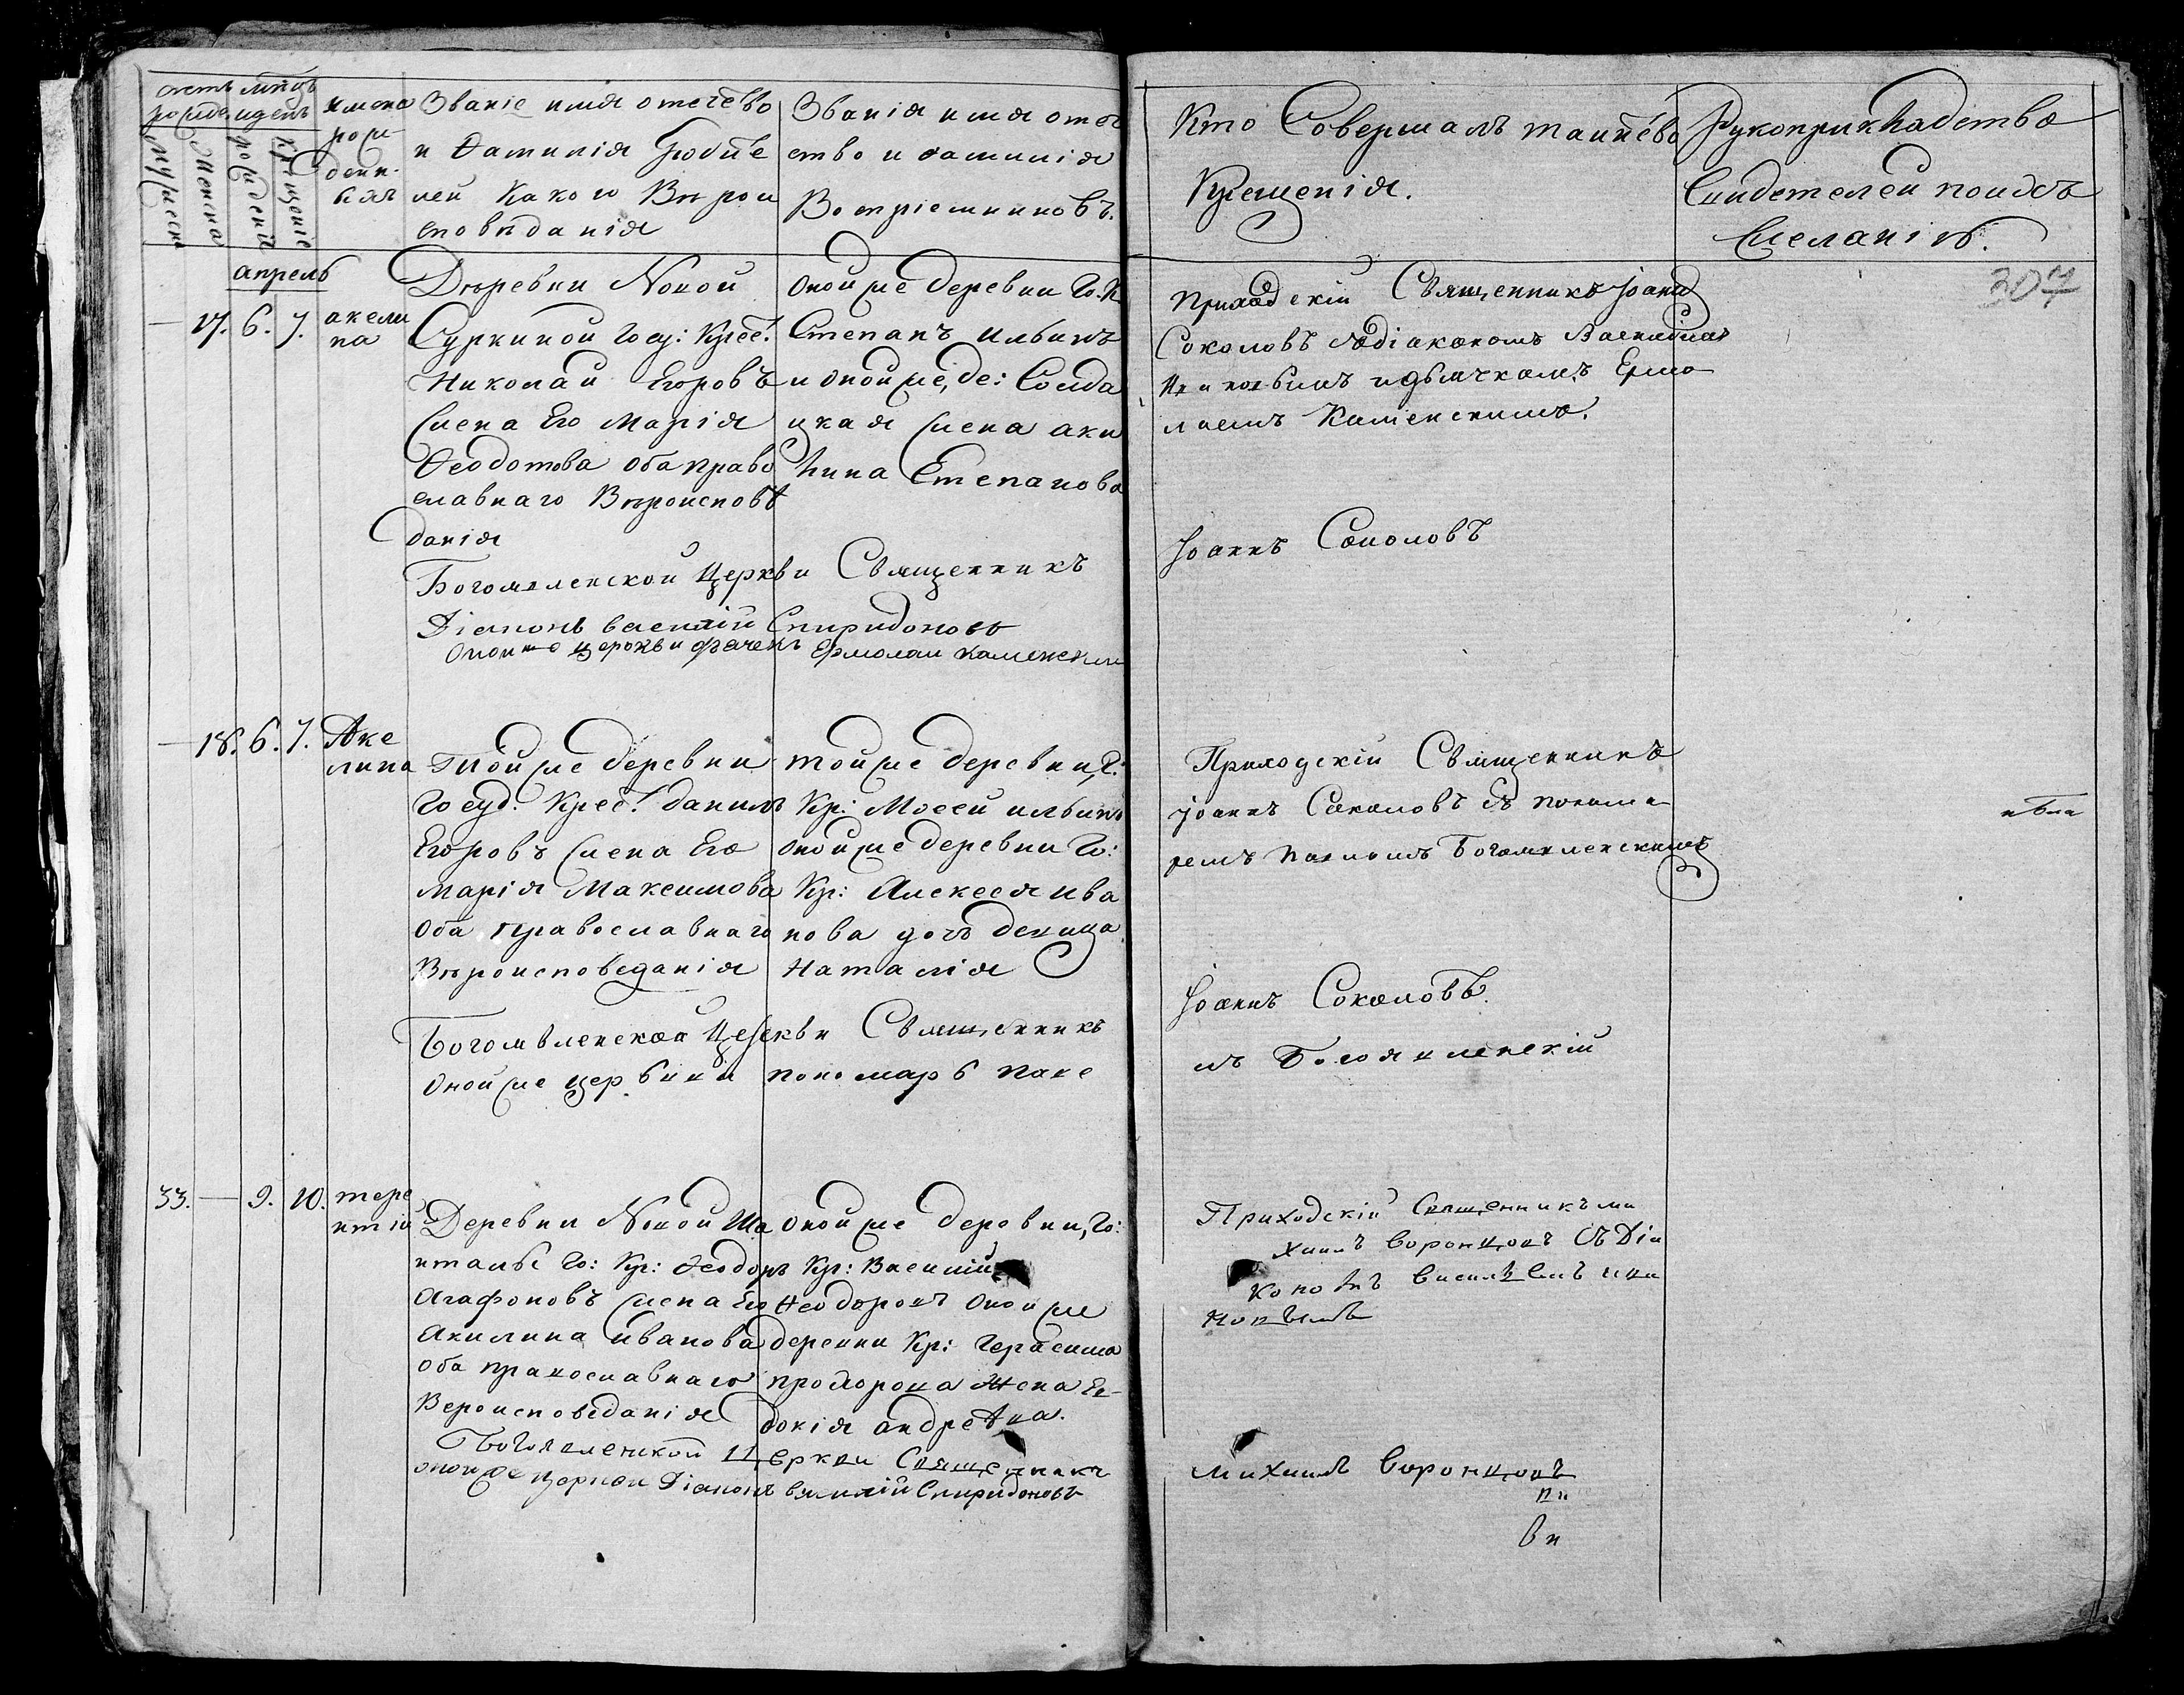 счетъ
рожде
мѣсяцъ
и день
имена
рож
денн
ыхъ
мужеска
женска
рожденiе
крещенiе
Званiе имя отечево
и Фамилiя Родите
лей Какого Вѣрои
споведанiя
Званiя имя отеч
ество и фамилiя
Воспрiемниковъ.
апрель
17. 6. 7.
акели
на
Дѣревни Новой
Суркиной Госу: Крест:
Николай Егоровъ
жена Его Марiя
Феодотова оба право
славнаго Вѣроисповѣ
данiя
Оной же деревни Го. К
Степанъ Ильинъ
и оной же де: Солда
цкая жена аки
лина Степанова
Богоявленской Церкви Священникъ
Дiаконъ василiй Спиридоновъ
Оной же церкви дьячекъ Ермолаи каменскiй
18. 6. 7.
Аке
лина
Той же деревни
Госуд: Крест: данилъ
Егоровъ жена Его
Марiя Максимова
Оба Православнаго
Вѣроисповеданiя
той же деревни, Г:
Кр: Мосей ильинъ
оной же деревни Го:
Кр: Алексея ива
нова дочь девица
Наталiя
Богоявленской Церкви Священникъ
Оной же церкви пономарь паве
33. 9. 10.
тере
нтiй
Деревни Новой Ша
нталы Го: Кр: Феодоръ
Агафоновъ жена Его
Акилина Иванова
оба православнаго
Вероисповеданiя
оной же деревни, Го:
Кр: Василiй
Феодоровъ Оной же
деревни Кр: Герасима
прохорова Жена Ев
докiя андреева.
Богоявленской Церкви Священникъ
оной же церкви Дiаконъ василiй Спиридоновъ
Кто Совершалъ таинство
Крещенiя.
Рукоприкладство
Свидетелей по ихъ
Желанiю.
307
Приходскiй Священникъ Iоанн
Соколовъ Съ дiакономъ Василiемъ
и дьячкомъ Ермо
лаемъ Каменскимъ.
Iоаннъ Соколовъ
Приходскiй Священникъ
Iоаннъ Соколовъ съ понома
ремъ Павломъ Богоявленскимъ
Iоаннъ Соколовъ.
лъ Богоявленскiй
Приходскiй Священникъ ми
хаилъ воронцовъ Съ Дiа
кономъ василѣемъ
Михаилъ Воронцовъ